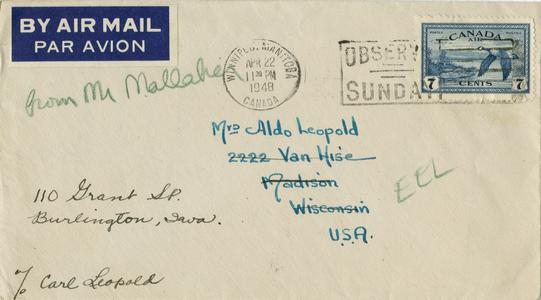 BY AIR MAIL
PAR AVION
from Mr
WINNIPEG, MANITOBA
APR 22
11 30 PM
1948
CANADA
OBSERVE
SUNDAY
POSTES POSTAGE
CANADA
AIR
7 CENTS 7
Mrs Aldo Leopold
2222 Van Hise
Madison
Wisconsin
U.S.A.
EEL
110 Grant St.
Burlington, Iowa.
% Carl Leopold